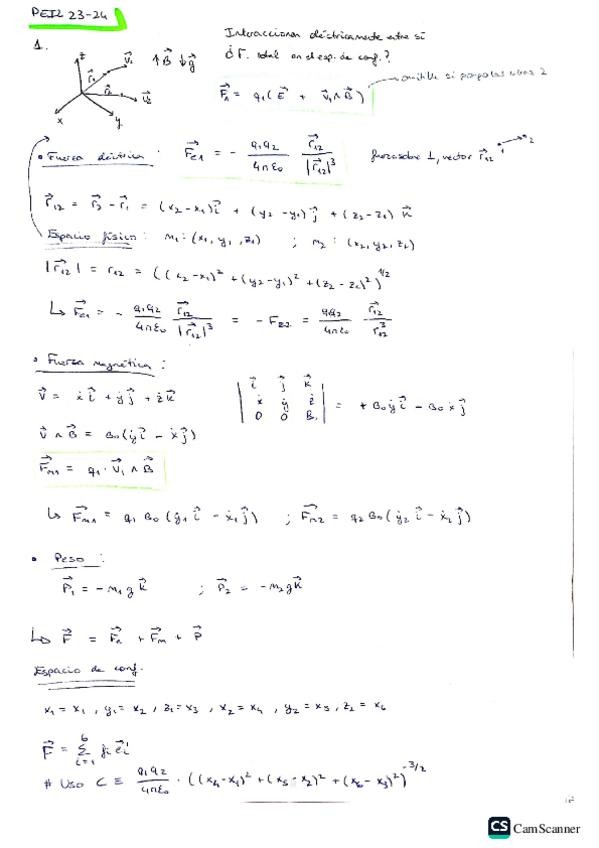 PEI2 23-24
Interaccionan eléctricamente entre sí
1.
z r₁ v₁ r₂ v₂ x y ↑B⃗ ↓g⃗
¿F. total en el esp. de conf.?
F⃗₁ = q₁(E⃗ + v⃗₁∧B⃗)
• Fuerza eléctrica: F⃗e1 = - q₁q₂/4πε₀ r⃗₁₂/|r⃗₁₂|³ fuerza sobre 1, vector r⃗₁₂ 1 2
r⃗₁₂ = r⃗₂ - r⃗₁ = (x₂-x₁)i⃗ + (y₂-y₁)j⃗ + (z₂-z₁)k⃗
Espacio físico: m₁: (x₁, y₁, z₁) ; m₂: (x₂, y₂, z₂)
|r⃗₁₂| = r₁₂ = ((x₂-x₁)² + (y₂-y₁)² + (z₂-z₁)²)^1/2
↳ F⃗e1 = - q₁q₂/4πε₀ r⃗₁₂/|r⃗₁₂|³ = -Fe2 = q₁q₂/4πε₀ r⃗₁₂/r₁₂³
• Fuerza magnética:
v⃗ = ẋi⃗ + ẏj⃗ + żk⃗ | i⃗ j⃗ k⃗ ; ẋ ẏ ż ; 0 0 B₀ | = + B₀ẏi⃗ - B₀ẋj⃗
v⃗∧B⃗ = B₀(ẏi⃗ - ẋj⃗)
F⃗m1 = q₁·v⃗₁∧B⃗
↳ F⃗m1 = q₁B₀(ẏ₁i⃗ - ẋ₁j⃗) ; F⃗m2 = q₂B₀(ẏ₂i⃗ - ẋ₂j⃗)
• Peso:
P⃗₁ = -m₁gk⃗ ; P⃗₂ = -m₂gk⃗
↳ F⃗ = F⃗e + F⃗m + P⃗
Espacio de conf.
x₁ = x₁, y₁ = x₂, z₁ = x₃, x₂ = x₄, y₂ = x₅, z₂ = x₆
F⃗ = Σ_{i=1}^{6} fi e⃗i
# Uso C ≡ q₁q₂/4πε₀ · ((x₄-x₁)² + (x₅-x₂)² + (x₆-x₃)²)^-3/2
CS CamScanner